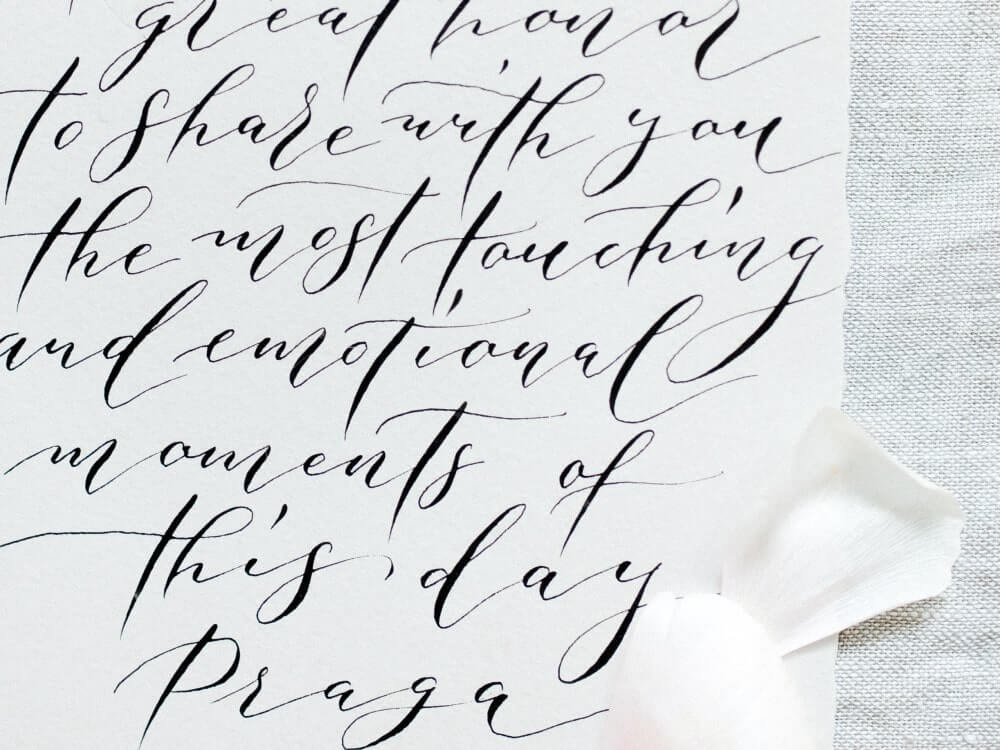 great honor
to share with you
the most touching
and emotional
moments of
this day
Praga